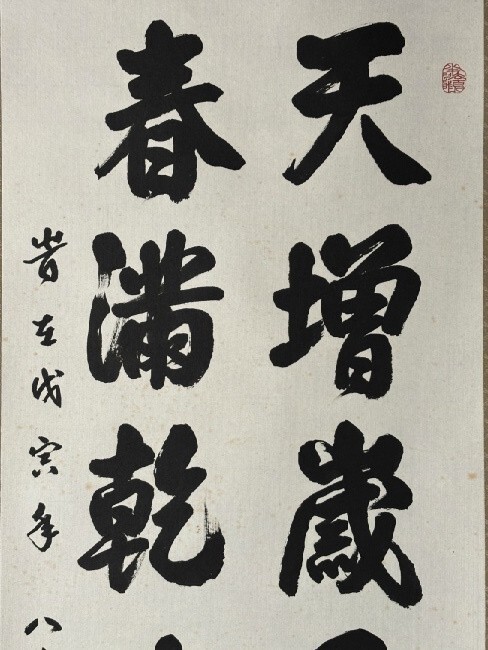 天增歲
春滿乾
時在戊寅年八